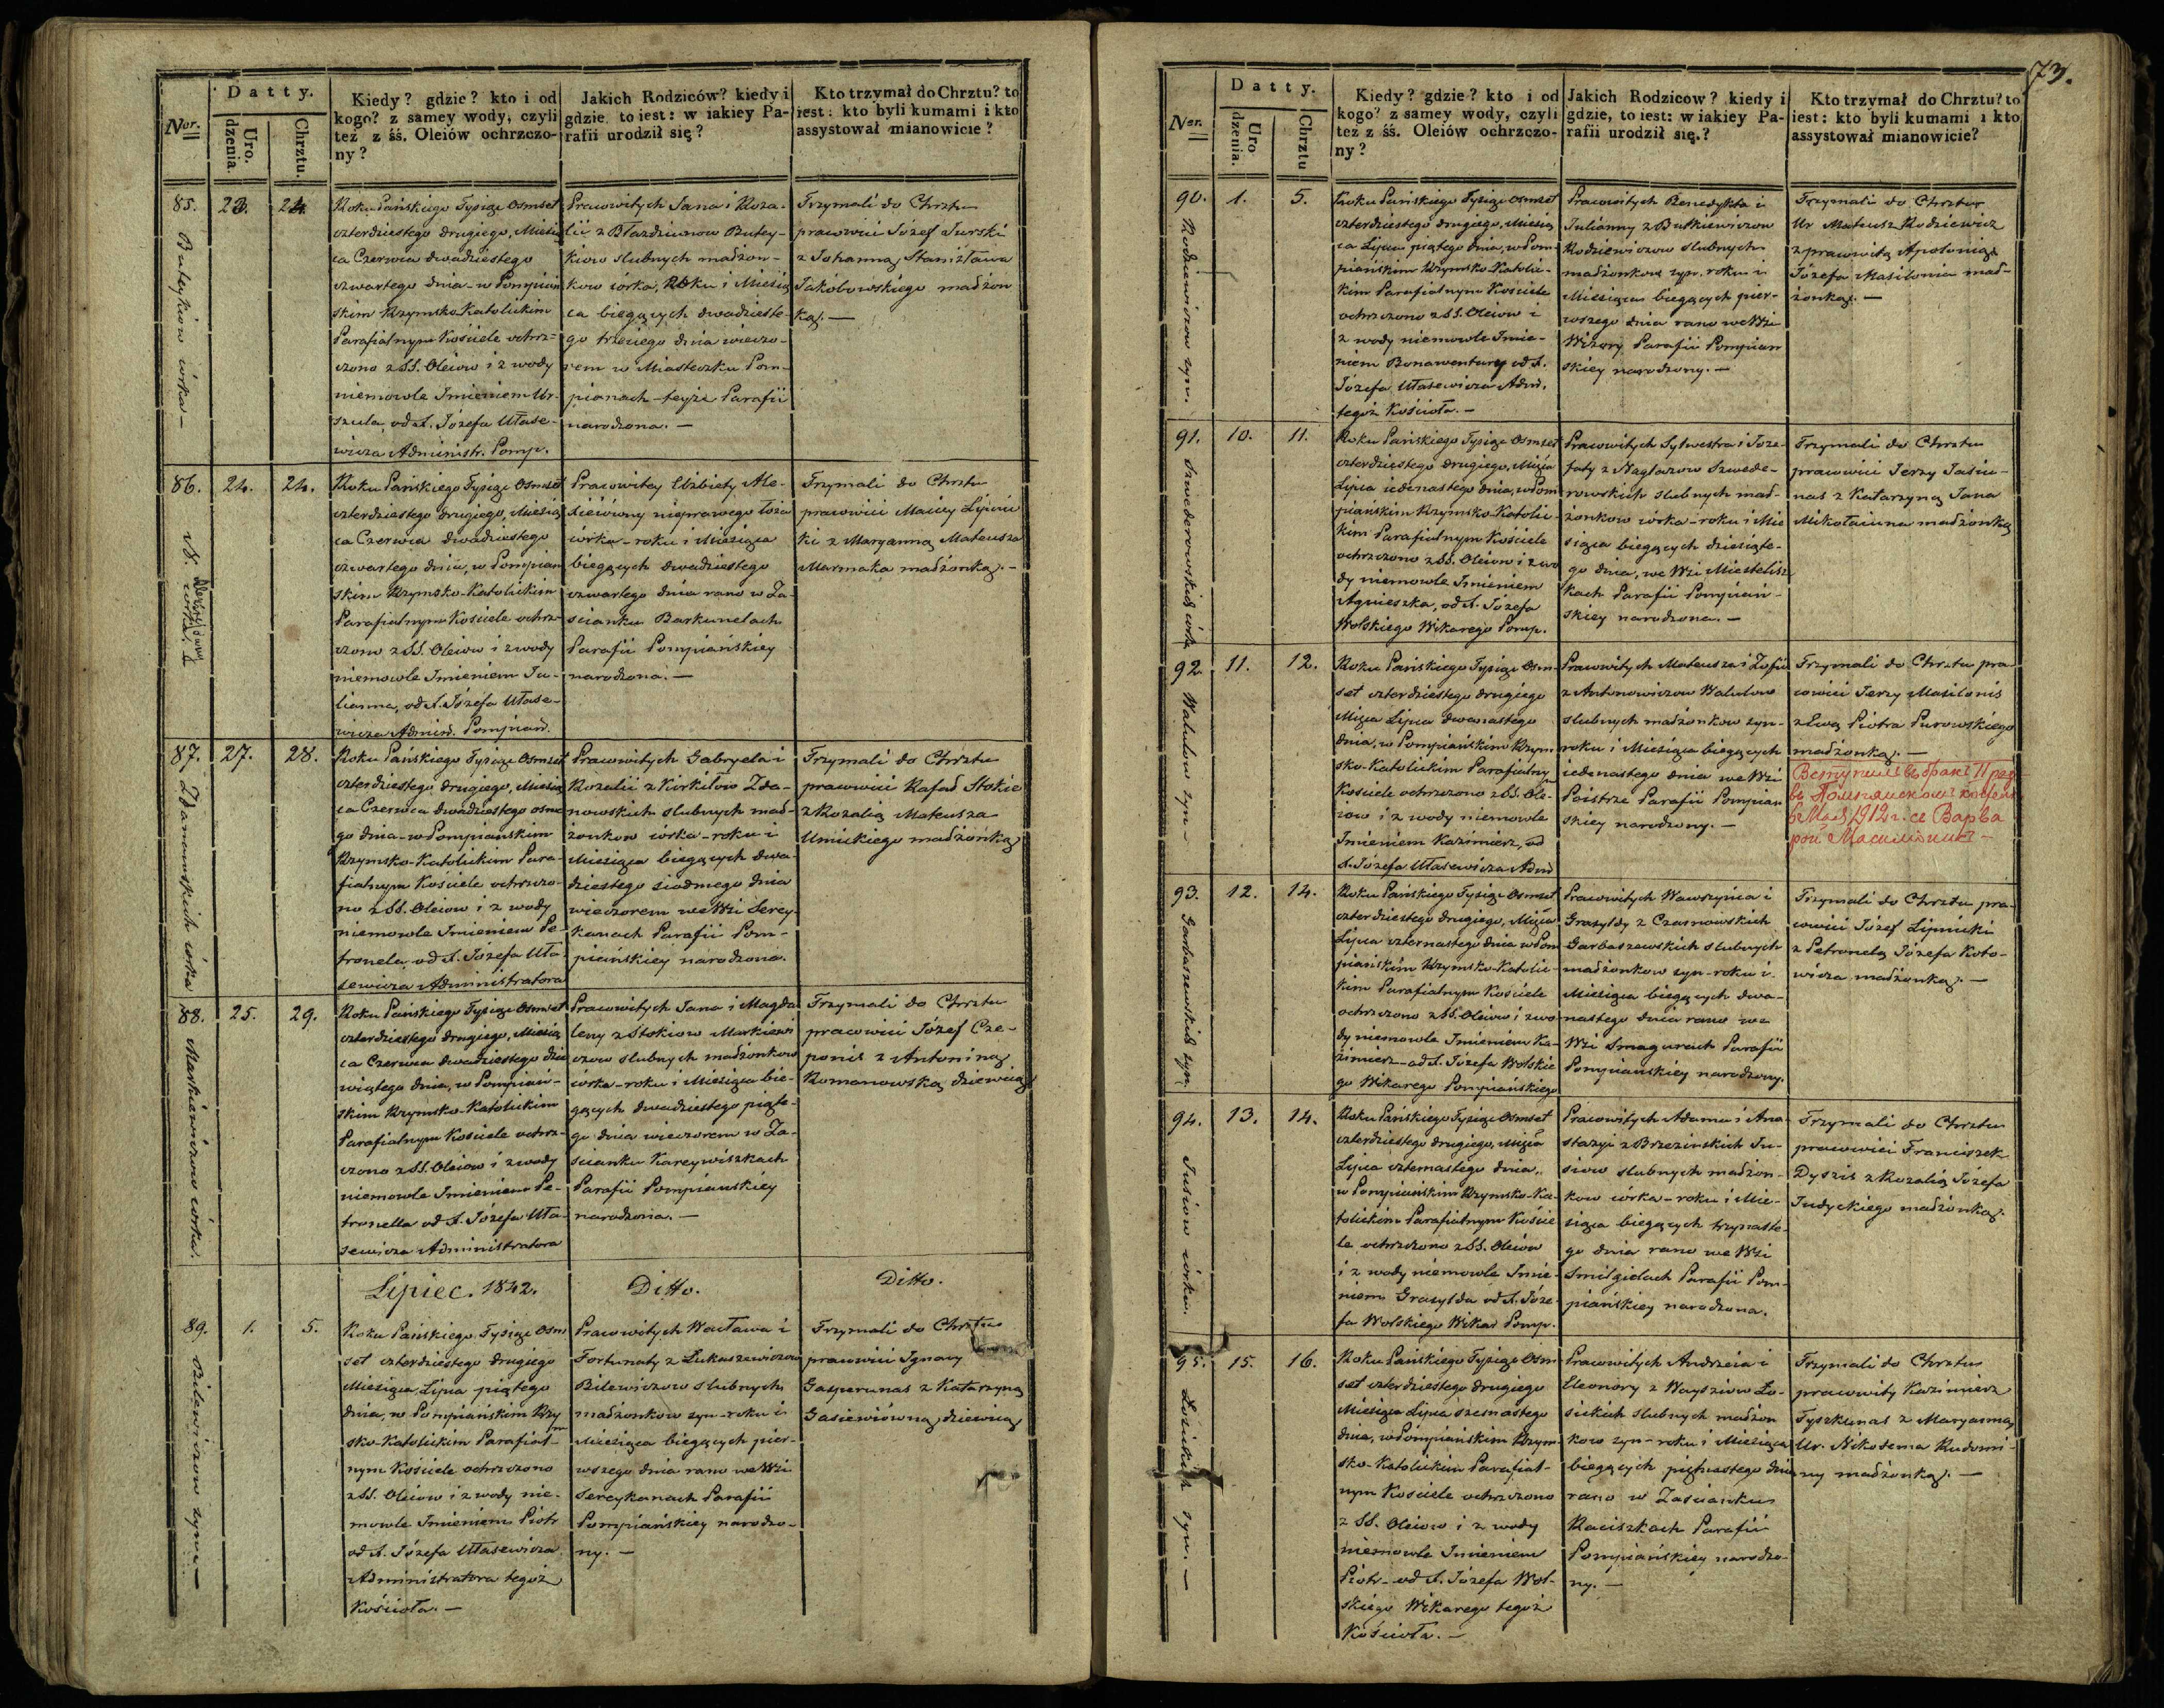 Datty.
Nor.
Uro.
dzenia.
Chrztu.
Kiedy? gdzie? kto i od
kogo? z samey wody, czyli
też z śś. Oleiów ochrzczo-
ny?
Jakich Rodziców? kiedy i
gdzie, to iest: w iakiey Pa-
rafii urodził się?
Kto trzymał do Chrztu? to
iest: kto byli kumami i kto
assystował mianowicie?
85.
23.
24.
Buteykiow córka —
Roku Pańskiego Tysiąc Osmset
czterdziestego drugiego, Miesią
ca Czerwca dwadziestego
czwartego dnia - w Pompiań
skim Rzymsko Katolickim
Parafialnym Kościele ochrz=
czono z SS. Oleiow i z wody
niemowle Imieniem Ur-
szula, od X. Józefa Ułase-
wicza Administr. Pomp.
Pracowitych Jana i Roza-
lii z Błazdziunow Butey-
kiow slubnych małżon-
kow córka, Roku i Miesią
ca biegących dwadzieste-
go trzeciego dnia wieczo-
rem w Miasteczku Pom-
pianach teyże Parafii
narodzona. —
Trzymali do Chrztu
pracowici Józef Jurski
z Johanną Stanisława
Jakóbowskiego małżon
ką. —
86.
24.
24.
Roku Pańskiego Tysiąc Osmset
czterdziestego drugiego, Miesią
ca Czerwca dwadziestego
czwartego dnia, w Pompian
skim Rzymsko-Katolickim
Parafialnym Kościele ochrz-
czono z SS. Oleiow i z wody
niemowle Imieniem Ju-
lianna, od X. Józefa Ułase-
wicza Admin. Pompiań.
Pracowitey Elżbiety Ale-
xieiówny nieprawego łoża
córka - roku i Miesiąca
biegących dwadziestego
czwartego dnia rano w Za-
scianku Barkunelach
Parafii Pompiańskiey
narodzona. —
Trzymali do Chrztu
pracowici Maciey Lipnic
ki z Maryanną Mateusza
Marmaka małżonką. —
87.
27.
28.
Zdanowskich córka
Roku Pańskiego Tysiąc Osmset
czterdziestego drugiego, Miesią
ca Czerwca dwadziestego osme
go dnia - w Pompianskim
Rzymsko-Katolickim Para-
fialnym Kościele ochrzczo-
no z SS. Oleiow i z wody
niemowle Imieniem Pe-
tronela, od X. Józefa Uła-
sewicza Administratora
Pracowitych Gabryela i
Rozalii z Kirkiłow Zda-
nowskich slubnych mał-
żonkow córka - roku i
Miesiąca biegących dwa-
dziestego siodmego dnia
wieczorem we Wsi Serey-
kanach Parafii Pom-
piańskiey narodzona.
Trzymali do Chrztu
pracowici Rafał Stokie
z Rozalią Mateusza
Umickiego małżonką
88.
25.
29.
Markiewiczow córka.
Roku Pańskiego Tysiąc Osmset
czterdziestego drugiego, Miesią
ca Czerwca dwadziestego dzie
wiątego dnia, w Pompiań-
skim Rzymsko-Katolickim
Parafialnym Kościele ochrz-
czono z SS. Oleiow i z wody
niemowle Imieniem Pe-
tronella od X. Józefa Uła-
sewicza Administratora
Pracowitych Jana i Magda
leny z Stokiow Markiewi
czow slubnych małżonkow
córka - roku i Miesiąca bie-
gących dwadziestego piąte-
go dnia wieczorem w Za-
scianku Kareywiszkach
Parafii Pompianskiey
narodzona. —
Trzymali do Chrztu
pracowici Józef Cze-
ponis z Antoniną
Romanowską dziewicą
Lipiec. 1842.
Ditto.
Ditto.
89.
1.
5.
Bilewiczow syn. —
Roku Pańskiego Tysiąc Osm
set czterdziestego drugiego
Miesiąca Lipca piątego
dnia, w Pompiańskim Rzym
sko-Katolickim Parafial-
nym Kościele ochrzczono
z SS. Oleiow i z wody nie-
mowle Imieniem Piotr
od X. Józefa Ułasewicza
Administratora tegoż
Kościoła. —
Pracowitych Wacława i
Fortunaty z Łukaszewiczow
Bilewiczow slubnych
małżonkow syn - roku i
Miesiąca biegących pier-
wszego dnia rano we Wsi
Sereykanach Parafii
Pompiańskiey narodzo-
ny. —
Trzymali do Chrztu
pracowici Ignacy
Gasperunas z Katarzyną
Gasiewiówną dziewicą
73.
Datty.
Nor.
Uro
dzenia.
Chrztu
Kiedy? gdzie? kto i od
kogo? z samey wody, czyli
też z śś. Oleiów ochrzczo-
ny?
Jakich Rodzicow? kiedy i
gdzie, to iest: w iakiey Pa-
rafii urodził się.?
Kto trzymał do Chrztu? to
iest: kto byli kumami i kto
assystował mianowicie?
90.
1.
5.
Rodziewiczow syn.
Roku Pańskiego Tysiąc Osmset
czterdziestego drugiego, Miesią
ca Lipca piątego dnia, w Pom-
piańskim Rzymsko-Katolic-
kim Parafialnym Kościele
ochrzczono z SS. Oleiow i
z wody niemowle Imie-
niem Bonawentura od X.
Józefa Ułasewicza Adm.
tegoż Kościoła. —
Pracowitych Benedykta i
Julianny z Butkiewiczow
Rodziewiczow slubnych
małżonkow syn. roku i
Miesiąca biegących pier-
wszego dnia rano we Wsi
Wizory Parafii Pompian
skiey narodzony. —
Trzymali do Chrztu
Ur Mateusz Rodziewicz
z pracowitą Apolonią
Józefa Masilonia mał-
żonką. —
91.
10.
11.
Szwederowskich córka
Roku Pańskiego Tysiąc Osmset
czterdziestego drugiego, Msca
Lipca iedenastego dnia, w Pom
piańskim Rzymsko-Katolic-
kim Parafialnym Kościele
ochrzczono z SS. Oleiow i z wo
dy niemowle Imieniem
Agnieszka, od X. Józefa
Wolskiego Wikarego Pomp.
Pracowitych Sylwestra i Joze-
faty z Naglazow Szwede-
rowskich slubnych mał-
żonkow córka - roku i Mie
siąca biegących dziesiąte-
go dnia, we Wsi Miestelisz
kach Parafii Pompiań-
skiey narodzona. —
Trzymali do Chrztu
pracowici Jerzy Jasiu-
nas z Katarzyną Jana
Mikołaiuna małżonką
92.
11.
12.
Walulow syn —
Roku Pańskiego Tysiąc Osm-
set czterdziestego drugiego
Msca Lipca dwanastego
dnia, w Pompiańskim Rzym-
sko-Katolickim Parafialny
Kościele ochrzczono z SS. Ole-
iow i z wody niemowle
Imieniem Kazimierz, od
X. Józefa Ułasewicza Adm
Pracowitych Mateusza i Zofii
z Antonowiczow Walulow
slubnych małżonkow syn-
roku i Miesiąca biegących
iedenastego dnia we Wsi
Poistrze Parafii Pompian
skiey narodzony. —
Trzymali do Chrztu pra
cowici Jerzy Masilonis
z Ewą Piotra Purowskiego
małżonką. —
93.
12.
14.
Garbaszewskich syn.
Roku Pańskiego Tysiąc Osmset
czterdziestego drugiego, Msca
Lipca czternastego dnia w Pom
piańskim Rzymsko-Katolic-
kim Parafialnym Kościele
ochrzczono z SS. Oleiow i z wo
dy niemowle Imieniem Ka-
zimierz - od X. Józefa Wolskie
go Wikarego Pompiańskiego
Pracowitych Wawrzyńca i
Grasyldy z Czasnowskich
Garbaszewskich slubnych
małżonkow syn - roku i
Miesiąca biegących dwa-
nastego dnia rano we
Wsi Smagurach Parafii
Pompiańskiey narodzony.
Trzymali do Chrztu pra-
cowici Józef Lipnicki
z Petronelą Józefa Koto-
wicza małżonką. —
94.
13.
14.
Jusiow córka.
Roku Pańskiego Tysiąc Osmset
czterdziestego drugiego, Msca
Lipca czternastego dnia,
w Pompiańskim Rzymsko-Ka-
tolickim Parafialnym Koście
le, ochrzczono z SS. Oleiow
i z wody niemowle Imie-
niem Grasylda od X. Józe-
fa Wolskiego Wikar Pomp.
Pracowitych Adama i Ana-
stazyi z Brzezinskich Ju-
siow slubnych małżon-
kow córka - roku i Mie-
siąca biegących trzynaste-
go dnia rano we Wsi
Smilgielach Parafii Pom-
piańskiey narodzona.
Trzymali do Chrztu
pracowici Franciszek
Dyszis z Rozalią Józefa
Judyckiego małżonką.
95.
15.
16.
Łosickich syn. —
Roku Pańskiego Tysiąc Osm
set czterdziestego drugiego
Miesiąca Lipca szesnastego
dnia, w Pompiańskim Rzym-
sko-Katolickim Parafial-
nym Kościele ochrzczono
z SS. Oleiow i z wody
niemowle Imieniem
Piotr - od X. Józefa Wol-
skiego Wikarego tegoż
Kościoła. —
Pracowitych Andrzeia i
Eleonory z Waysziow Ło-
sickich slubnych małżon
kow syn - roku i Miesiąca
biegących piętnastego dnia
rano w Zascianku
Raciszkach Parafii
Pompiańskiey narodzo-
ny. —
Trzymali do Chrztu
pracowity Kazimierz
Tyszkunas z Maryanną
Ur. Nikodema Rudomi-
ny małżonką. —